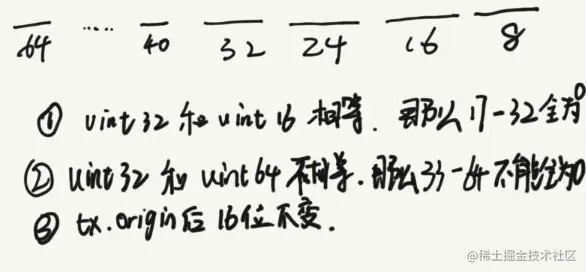 64 ..... 40 32 24 16 8
① uint 32 和 uint 16 相等. 那么 17-32 全为0
② uint 32 和 uint 64 不相等. 那么 33-64 不能全为0
③ tx.origin 后 16 位不变.
@稀土掘金技术社区